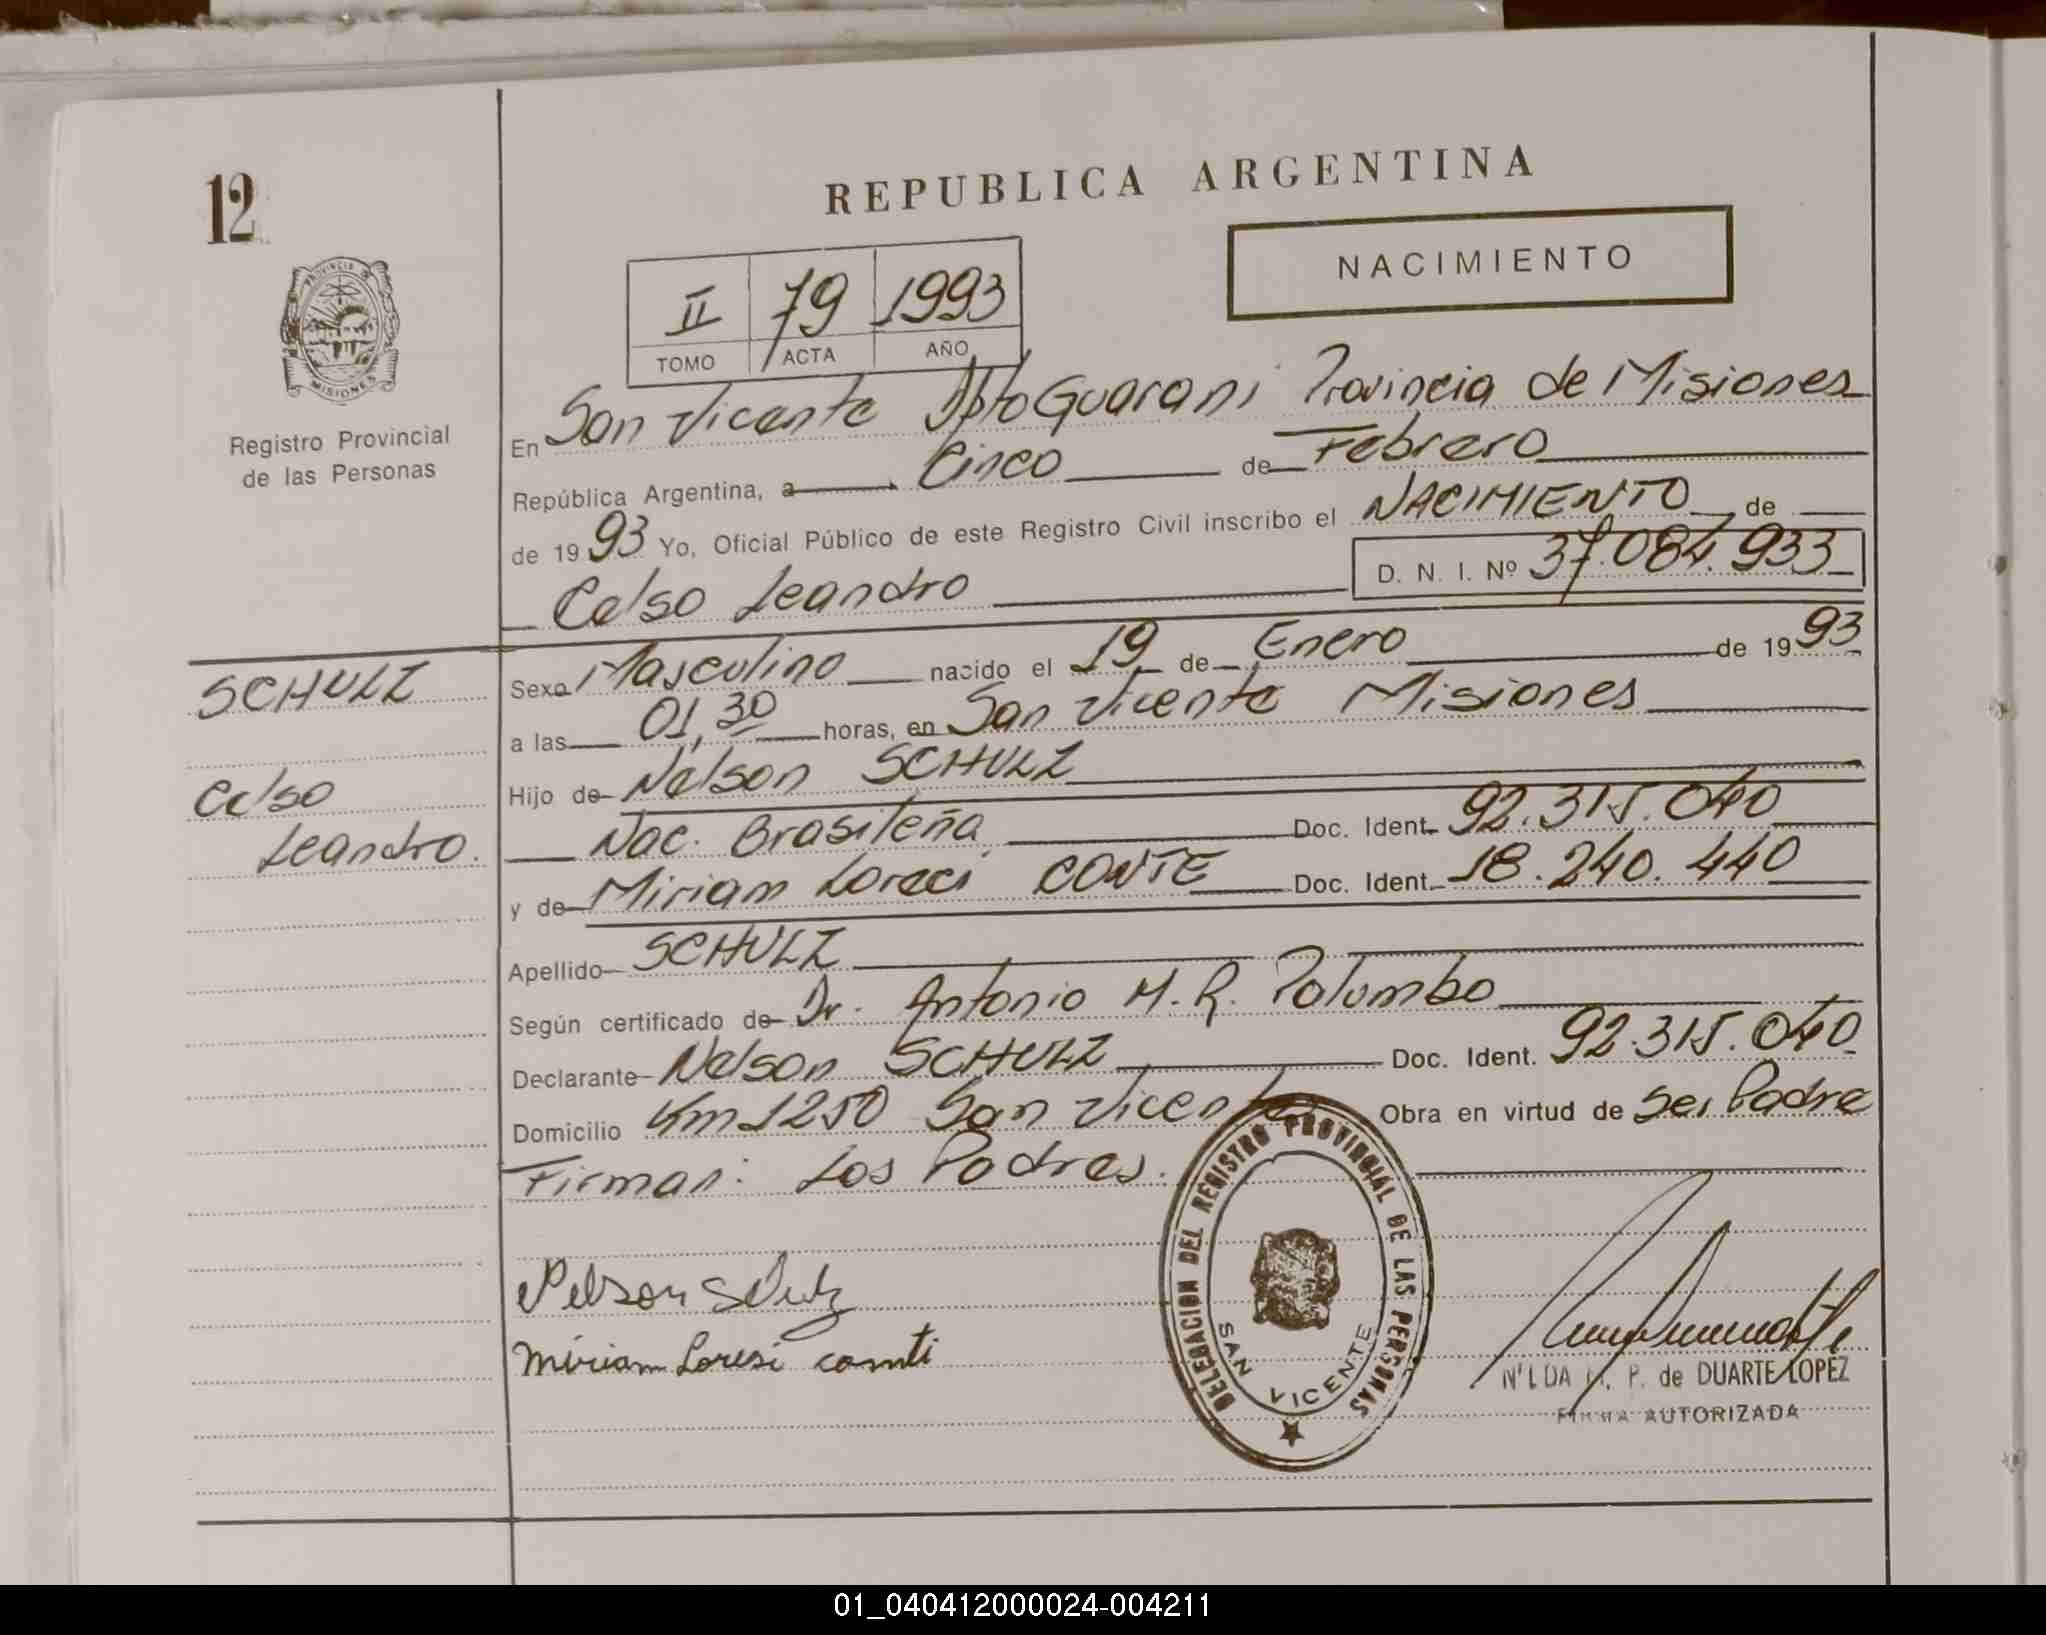 12
REPUBLICA ARGENTINA
NACIMIENTO
II 79 1993
TOMO ACTA AÑO
PROVINCIA DE
MISIONES
Registro Provincial
de las Personas
En San Vicente Dpto Guarani Provincia de Misiones
República Argentina, a Cinco de Febrero
de 1993 Yo, Oficial Público de este Registro Civil inscribo el NACIMIENTO de
Celso Leandro D. N. I. Nº 37.084.933
SCHULZ
Celso
Leandro.
Sexo Masculino nacido el 19 de Enero de 1993
a las 01,30 horas, en San Vicente Misiones
Hijo de Nelson SCHULZ
Nac. Brasileña Doc. Ident. 92.315.040
y de Miriam Loreci CONTE Doc. Ident. 18.240.440
Apellido SCHULZ
Según certificado de Dr. Antonio M. R. Palumbo
Declarante Nelson SCHULZ Doc. Ident. 92.315.040
Domicilio Km 1250 San Vicente Obra en virtud de Ser Padre
Firman: Los Padres.
Nelson Schulz
Miriam Loresi conti
DELEGACION DEL REGISTRO PROVINCIAL DE LAS PERSONAS
SAN VICENTE
P. de DUARTE LOPEZ
FIRMA AUTORIZADA
01_040412000024-004211